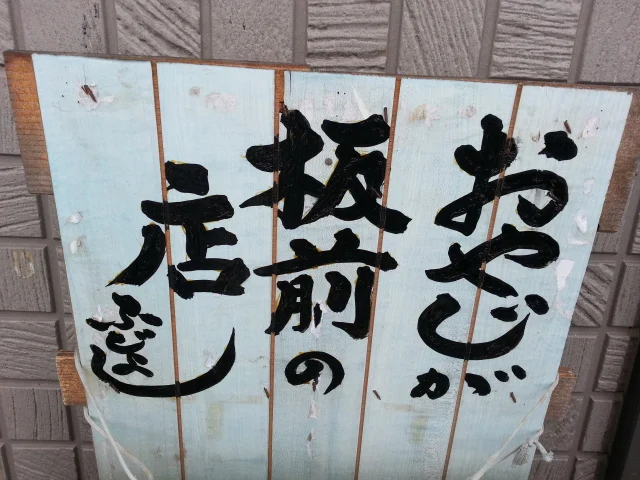 おやじが
板前の
店
ふじよし